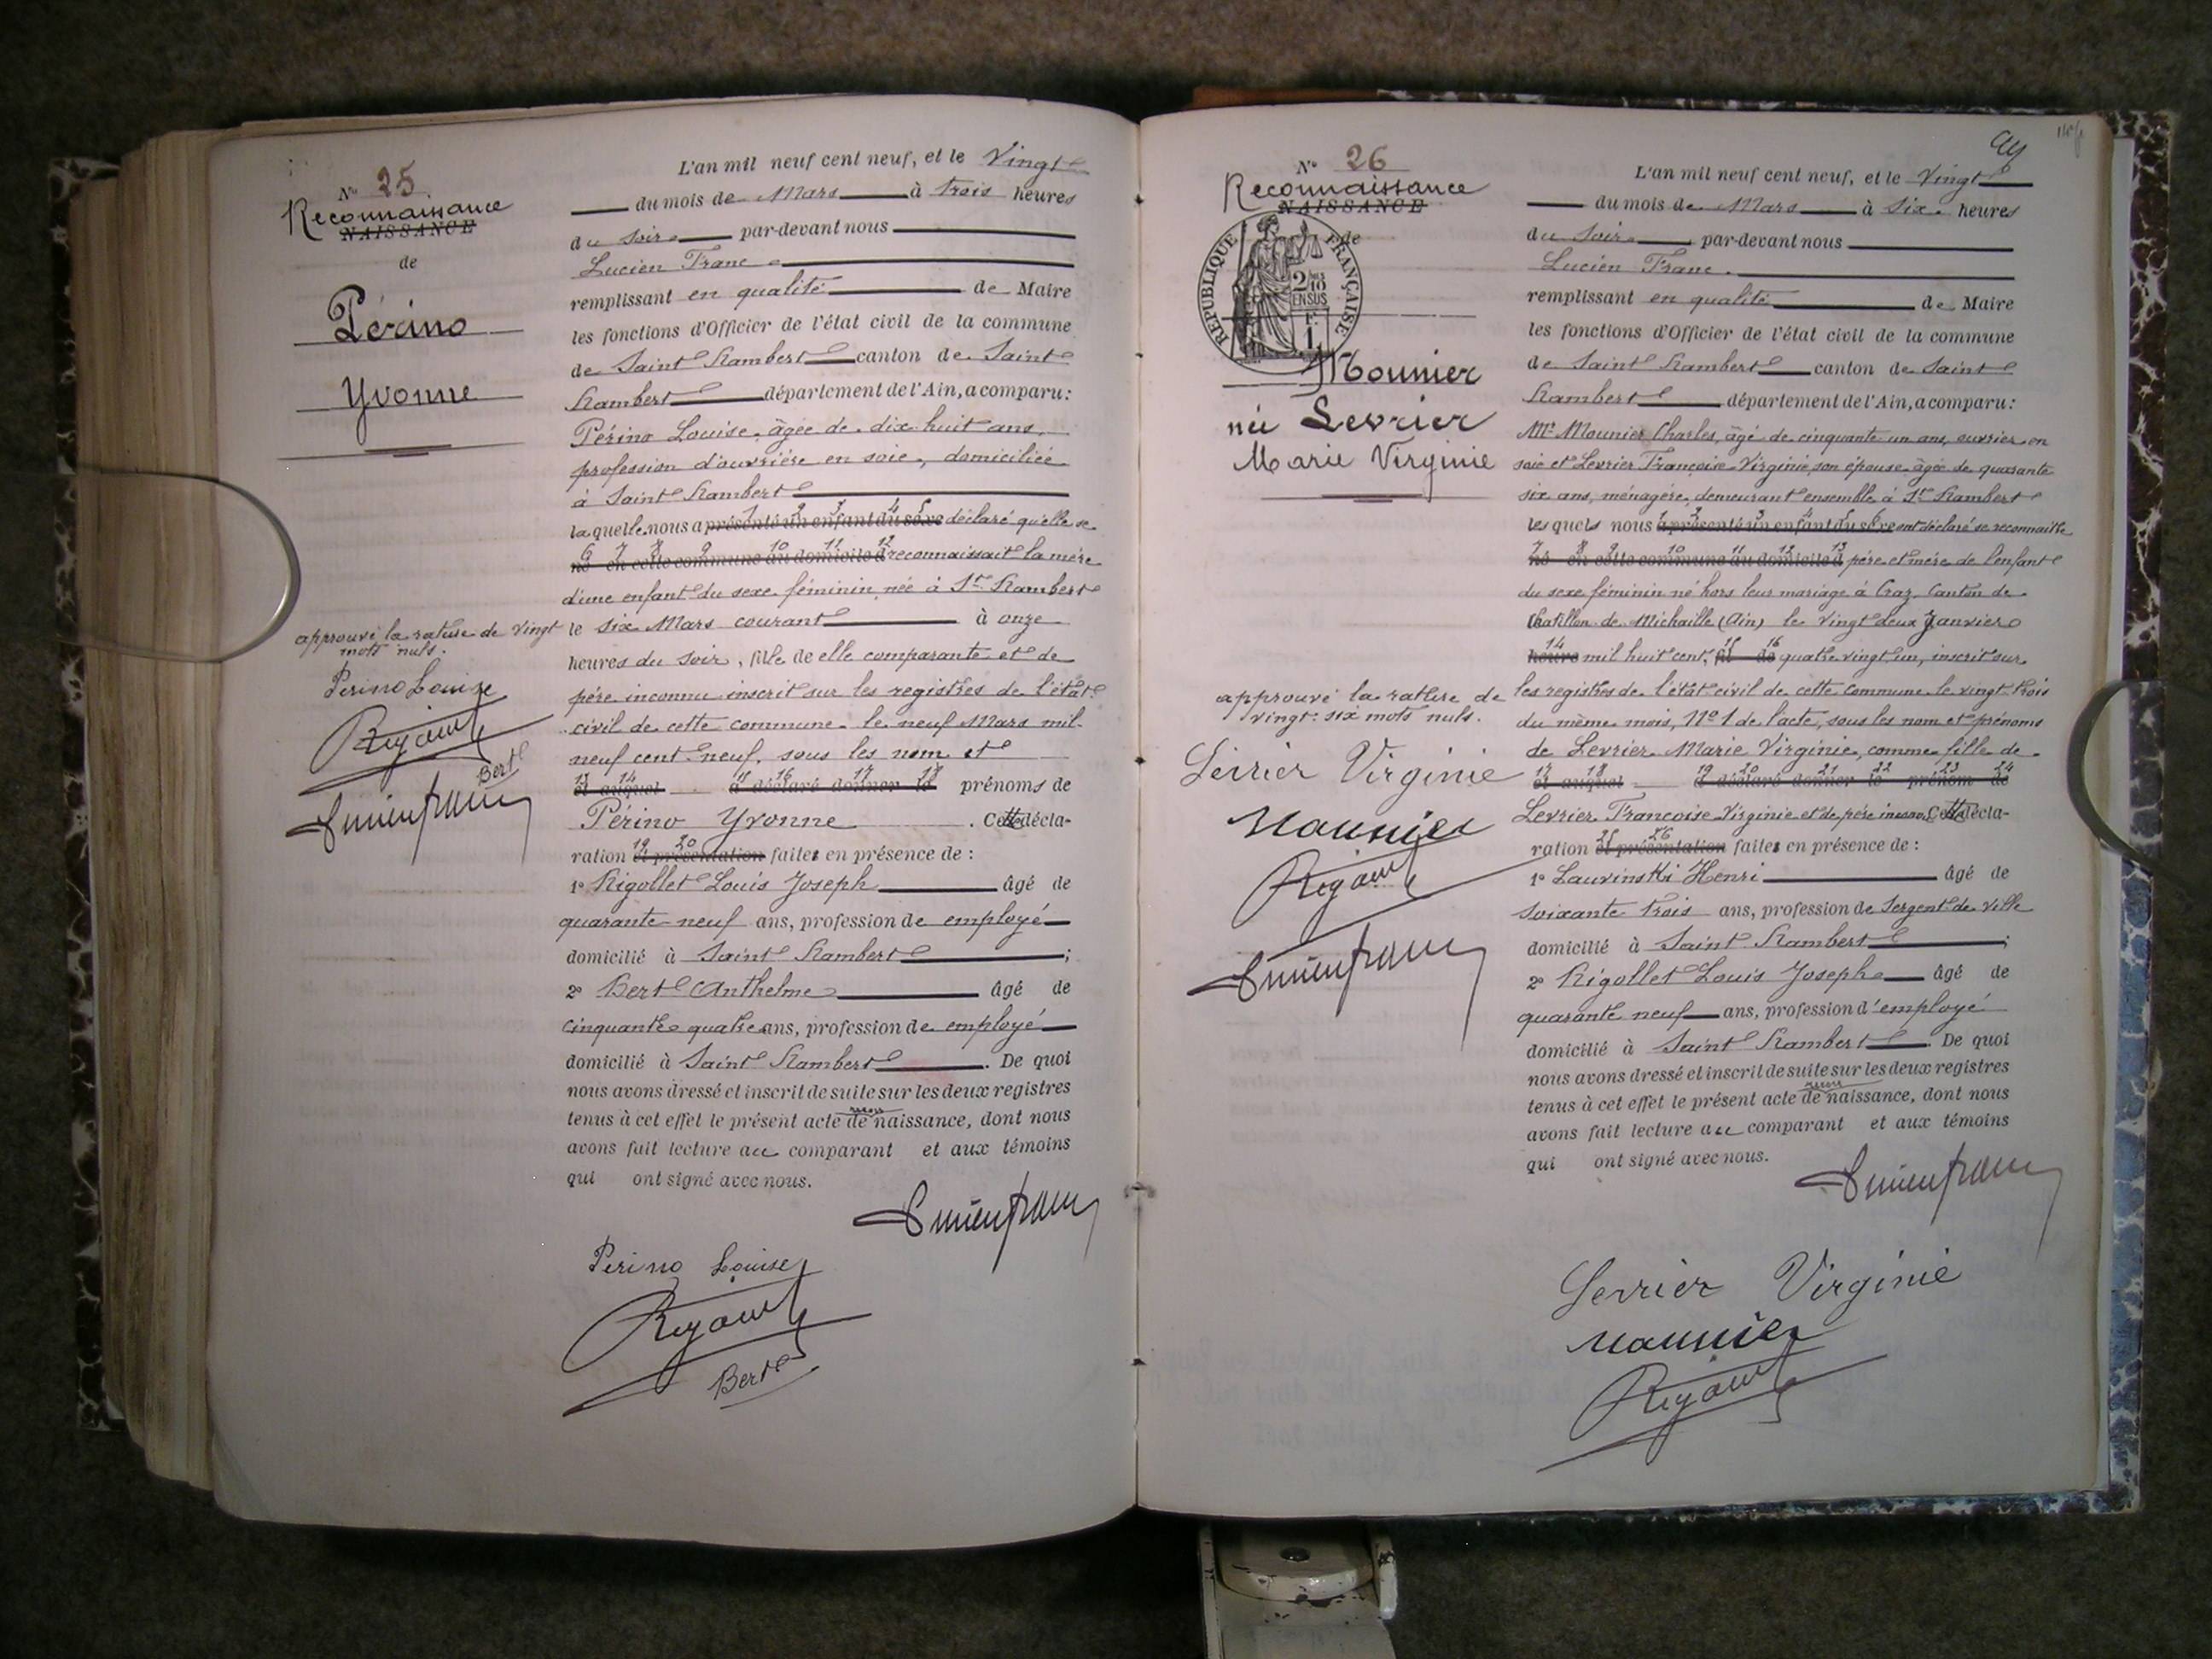 N° 25
Reconnaissance
NAISSANCE
de
Périno
Yvonne
approuvé la rature de vingt
mots nuls.
Perino Louise
Bert
L'an mil neuf cent neuf, et le Vingt
du mois de Mars à trois heures
du soir par-devant nous
Lucien Franc
remplissant en qualité de Maire
les fonctions d'Officier de l'état civil de la commune
de Saint Rambert canton de Saint
Rambert département de l'Ain, a comparu:
Périno Louise, âgée de dix huit ans,
profession d'ouvrière en soie, domiciliée
à Saint Rambert
laquelle nous a présenté un enfant du sexe déclaré qu'elle se
1 2 3 4 5
né en cette commune au domicile d reconnaissait la mère
6 7 8 9 10 11 12
d'une enfant du sexe féminin née à St Rambert
le six Mars courant à onze
heures du soir, fille de elle comparante et de
père inconnu inscrit sur les registres de l'état
civil de cette commune le neuf Mars mil
neuf cent neuf, sous les nom et
13 14 15 16 17 18
et auquel a déclaré donner le prénoms de
Périno Yvonne . Cette décla-
19 20
ration et présentation faites en présence de :
1° Rigollet Louis Joseph âgé de
quarante neuf ans, profession de employé
domicilié à Saint Rambert ;
2° Bert Anthelme âgé de
cinquante quatre ans, profession de employé
domicilié à Saint Rambert . De quoi
nous avons dressé et inscrit de suite sur les deux registres
tenus à cet effet le présent acte de naissance, dont nous
avons fait lecture au comparant et aux témoins
qui ont signé avec nous.
Perino Louise
Bert
N° 26
Reconnaissance
NAISSANCE
de
RÉPUBLIQUE FRANÇAISE
2/10
EN SUS
F.
1
Mounier
née Levrier
Marie Virginie
approuvé la rature de
vingt-six mots nuls.
Levrier Virginie
Mounier
L'an mil neuf cent neuf, et le Vingt
du mois de Mars à six heures
du soir par-devant nous
Lucien Franc
remplissant en qualité de Maire
les fonctions d'Officier de l'état civil de la commune
de Saint Rambert canton de Saint
Rambert département de l'Ain, a comparu:
Mr Mounier Charles, âgé de cinquante un ans, ouvrier en
soie et Levrier Françoise Virginie son épouse âgée de quarante
six ans, ménagère, demeurant ensemble à St Rambert
lesquels nous a présenté un enfant du sexe ont déclaré se reconnaître
1 2 3 4 5 6
né en cette commune au domicile d père et mère de l'enfant
7 8 9 10 11 12 13
du sexe féminin né hors leur mariage à Craz Canton de
Chatillon de Michaille (Ain) le Vingt deux Janvier
14 15 16
heure mil huit cent fil de quatre vingt un, inscrit sur
les registres de l'état civil de cette commune le vingt trois
du même mois, N° 1 de l'acte, sous les nom et prénoms
de Levrier Marie Virginie, comme fille de
17 18 19 20 21 22 23 24
et auquel a déclaré donner le prénom de
Levrier Françoise Virginie et de père inconnu. Cette décla-
25 26
ration et présentation faites en présence de :
1° Laurinski Henri âgé de
soixante trois ans, profession de Sergent de ville
domicilié à Saint Rambert ;
2° Rigollet Louis Joseph âgé de
quarante neuf ans, profession d'employé
domicilié à Saint Rambert . De quoi
nous avons dressé et inscrit de suite sur les deux registres
tenus à cet effet le présent acte de naissance, dont nous
avons fait lecture au comparant et aux témoins
qui ont signé avec nous.
Levrier Virginie
Mounier